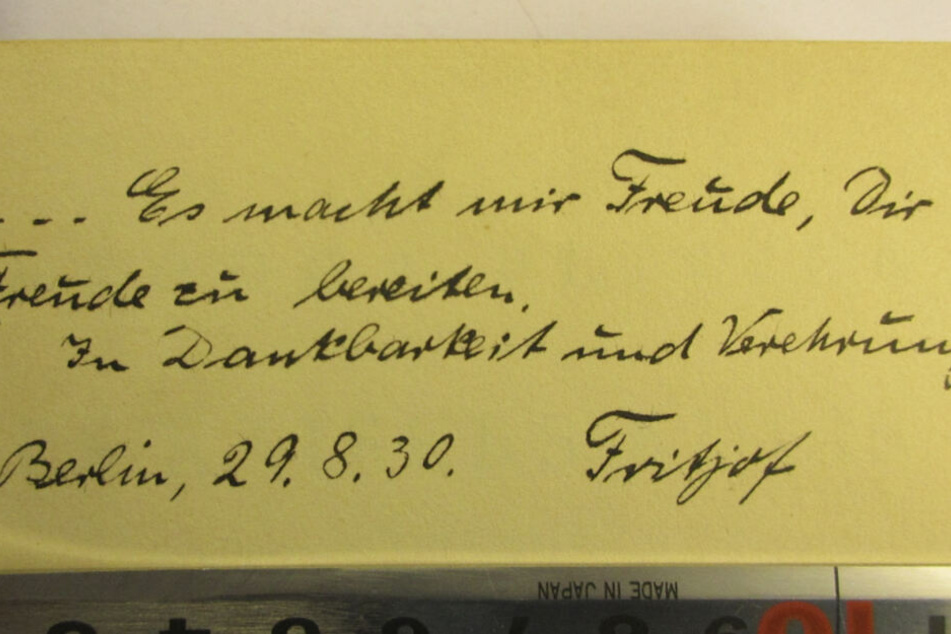 ... Es macht mir Freude, Dir
Freude zu bereiten.
In Dankbarkeit und Verehrun
Berlin, 29.8.30. Fritjof
MADE IN JAPAN